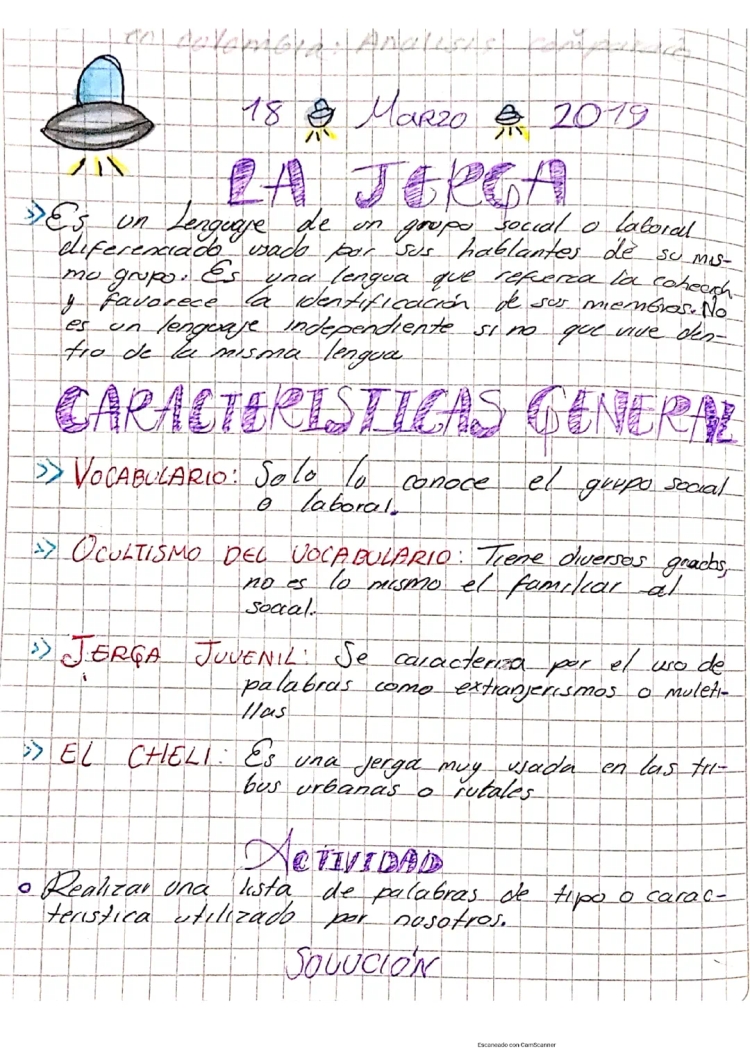 en colombia: Analisis
18 Marzo 2019
LA JERGA
Es un Lenguaje de un grupo social o laboral
diferenciado usado por sus hablantes de su mis-
mo grupo. Es una lengua que refuerza la cohesión
y favorece la identificación de sus miembros. No
es un lenguaje independiente si no que vive den-
tro de la misma lengua
CARACTERISTICAS GENERAL
>> VOCABULARIO: Solo lo conoce el grupo social
o laboral.
>> OCULTISMO DEL VOCABULARIO: Tiene diversos grados,
no es lo mismo el familiar al
social.
>> JERGA JUVENIL: Se caracteriza por el uso de
palabras como extranjerismos o muleti-
llas
>> EL CHELI: Es una jerga muy usada en las tri-
bus urbanas o rurales
ACTIVIDAD
Realizar una lista de palabras de tipo o carac-
teristica utilizado por nosotros.
SOLUCIÓN
Escaneado con CamScanner